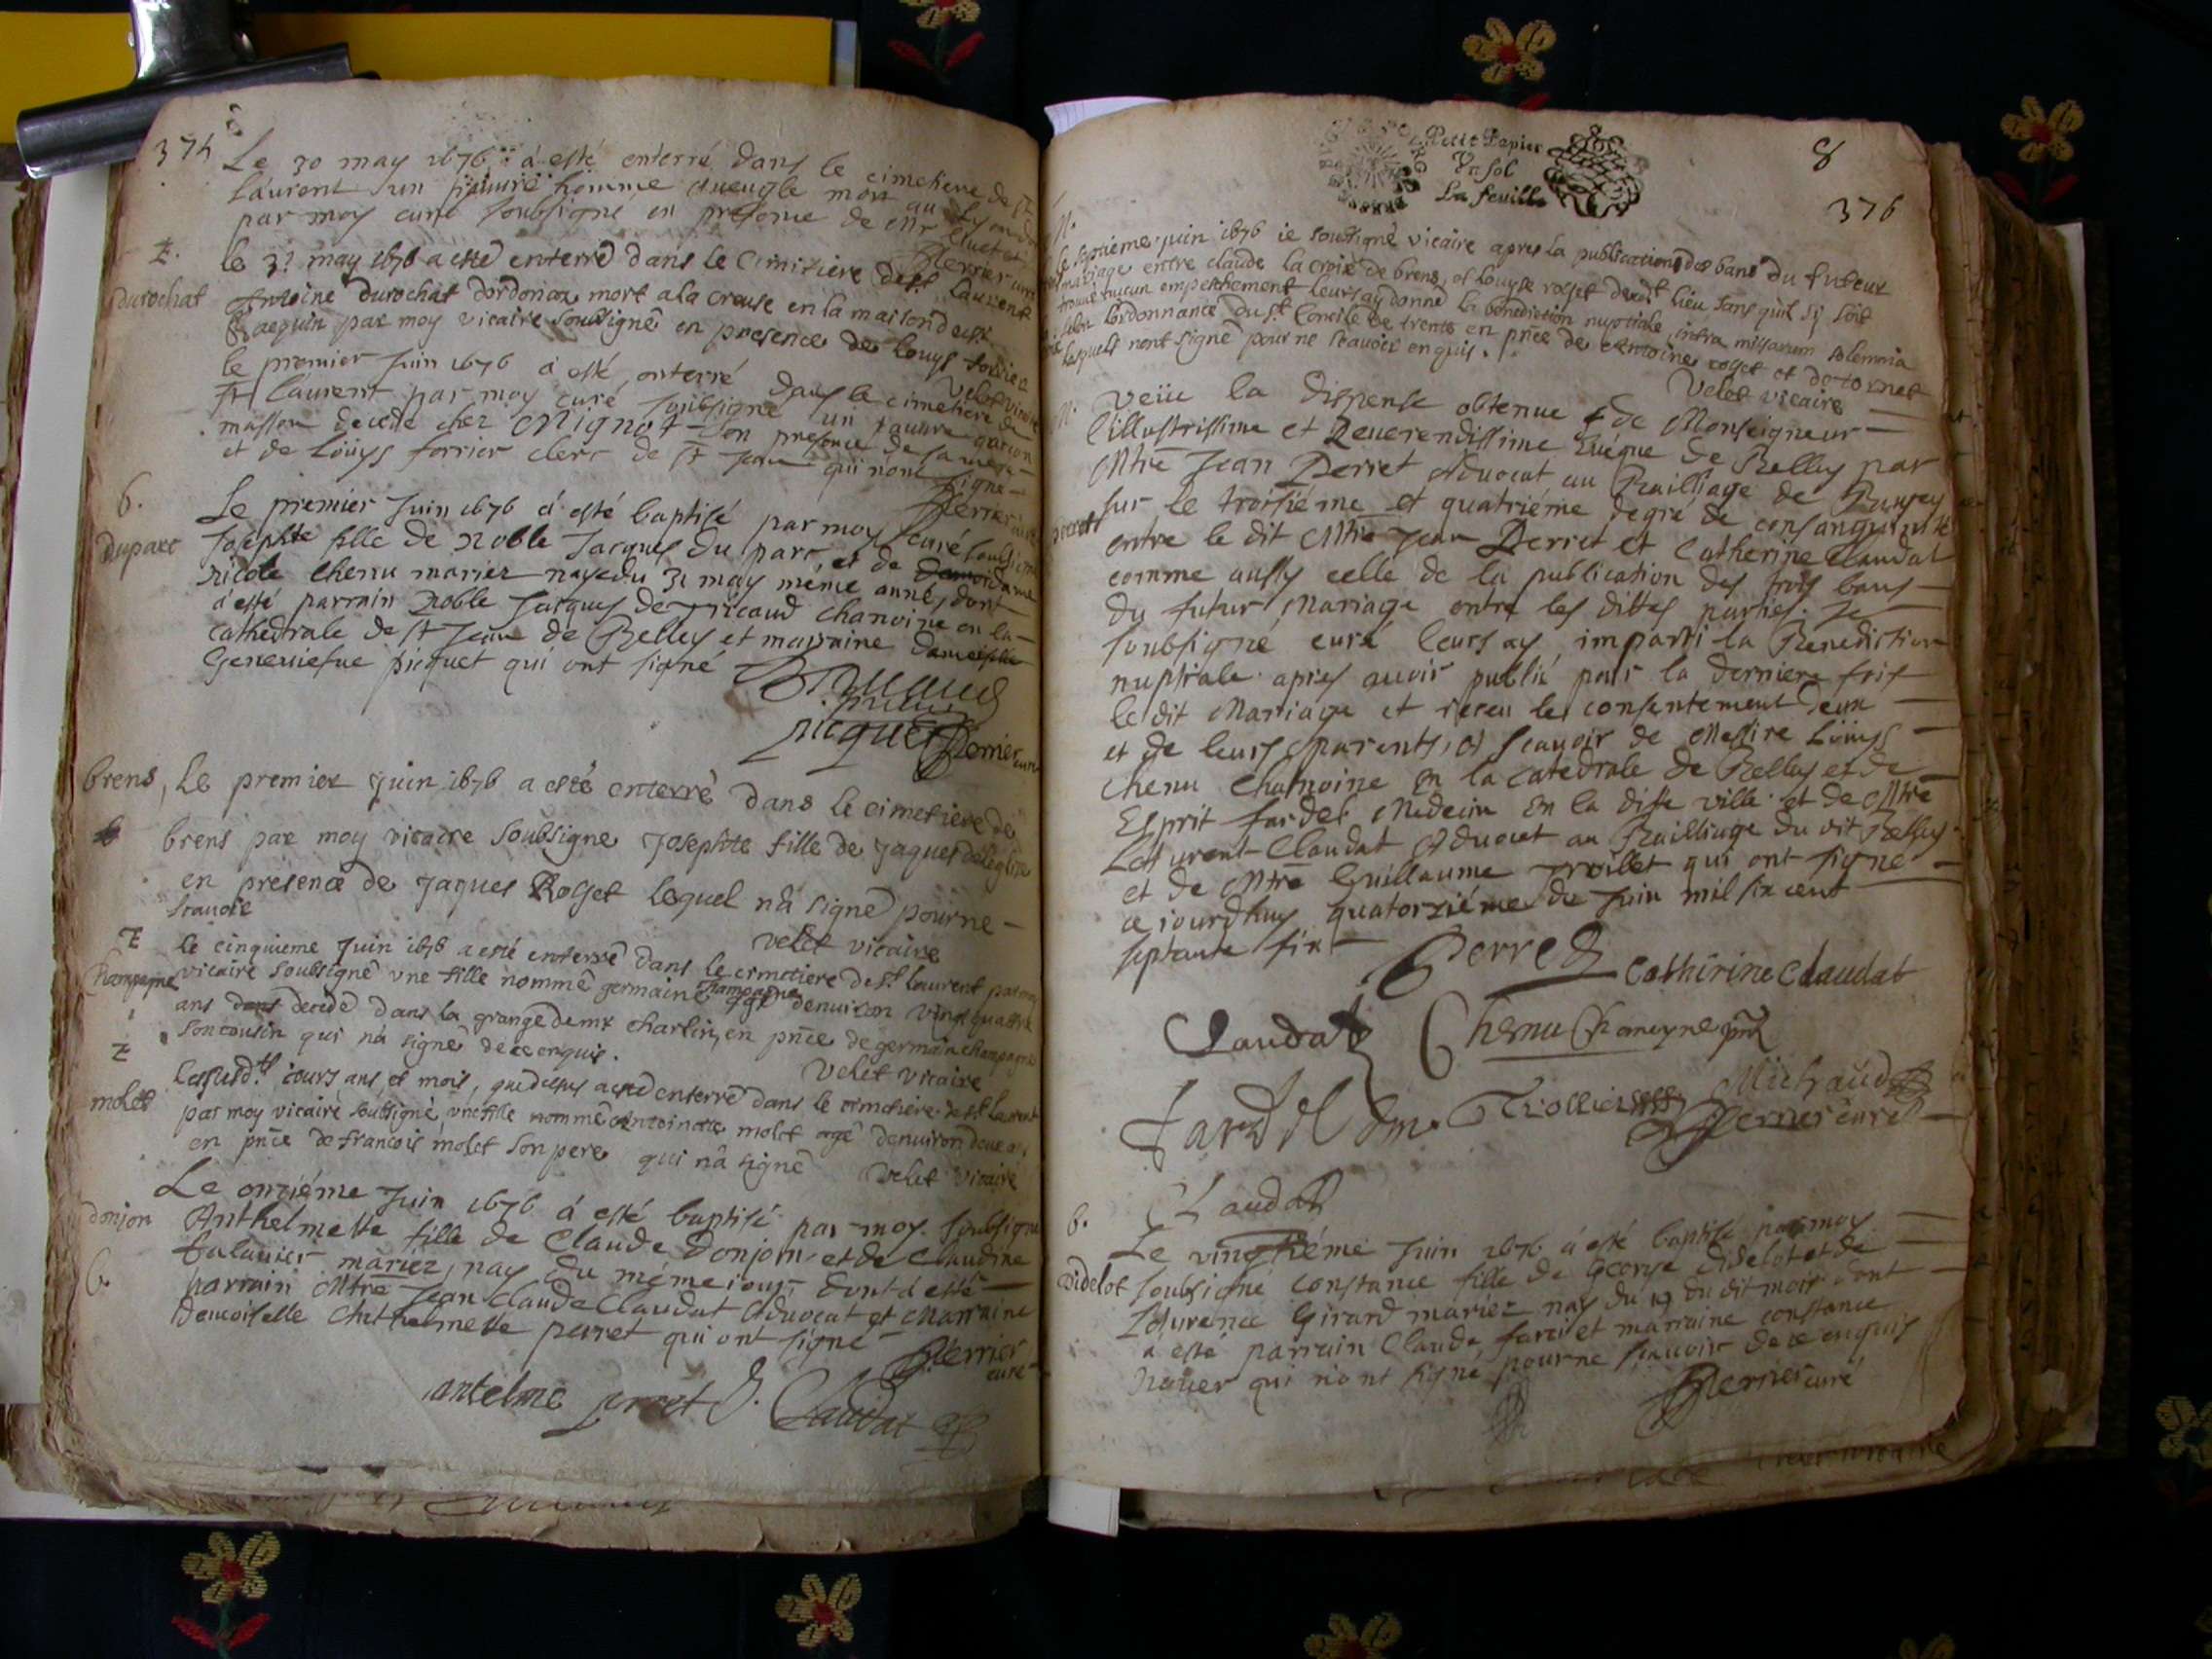 375
Le 30 may 1676 à esté enterré dans le cimetiere de St
Laurent un pauure homme aueugle mort au
par moy curé soubsigné en presence de Mr Cluet
Perrier curé
le 31 may 1676 a esté enterré dans le Cimitiere de St Laurent
durochat
Antoine durochat dordonax mort a la creuse en la maison de
Jaequin par moy vicaire soubsigné en presence de Louys forrier
Velet vicaire
le premier Juin 1676 à esté enterré dans le cimetiere de
St Laurent par moy curé soubsigné un pauure garcon
masson decedé chez Mignot en presence de sa mere
et de Loüys forrier clerc de St Jean qui n'ont signé
Perrier curé
b.
duparc
Le premier Juin 1676 à esté baptisé par moy curé soubsigné
Josephte fille de Noble Jacques du parc, et de dame
Nicole Chenu mariez naye du 31 may méme année, dont
à esté parrain Noble Jacques de Tricaud chanoine en la
cathedrale de St Jean de Belley et marraine damoiselle
Geneuiefue picquet qui ont signé
Tricaud
picquet
Perrier curé
brens, Le premier Juin 1676 a esté enterré dans le cimetiere de
brens par moy vicaire soubsigné Josephte fille de Jaques deleglise
en presence de Jaques Roset lequel n'a signé pour ne
scauoir
Velet vicaire
le cinquieme Juin 1676 a esté enterré dans le cimetiere de St Laurent par moy
Champagne
vicaire soubsigné vne fille nommé germaine champagne agé denuiron vingt quattre
ans decedé dans la grange de mr charlin, en pnce de germain champagne
son cousin qui n'a signé de ce enquis.
Velet vicaire
Les susdts jours ans et mois, que dessus a esté enterré dans le cimetiere de st Laurent
molet
par moy vicaire soubsigné, vne fille nommé Antoinette molet agé denuiron deux ans
en pnce de francois molet son pere qui n'a signé
Velet vicaire
donjon
b.
Le onziéme Juin 1676 à esté baptisé par moy soubsigné
Anthelmette fille de Claude Donjon et de Claudine
mariez, nay du méme iour, dont à esté
parrain Mtre Jean Claude Claudat Aduocat et Marraine
Demoiselle Anthelmette perret qui ont signé
Perrier curé
antelme perret J. Claudat
Petit Papier
Vn Sol
La feuille
8
376
Le septieme juin 1676 ie soubsigné vicaire apres la publication des bans du futeur
mariage entre claude la croix de brens, et Louyse roset dudit lieu sans quil sy soit
trouué aucun empeschement leurs ay donné la benediction nuptiale, intra missarum solemnia
selon lordonnance du st Concile de trente en pnce de Antoine roset et de tornet
lesquels nont signé pour ne scauoir enquis.
Velet vicaire
M.
perret
Veüe la dispense obtenue de Monseigneur
l'illustrissime et Reuerendissime Euéque de Belley par
Mtre Jean Perret Aduocat au Bailliage de Bugey
sur le troisiéme et quatriéme degré de consanguinité
entre le dit Mtre Jean Perret et Catherine Claudat
comme aussy celle de la publication des trois bans
du futur Mariage entre les dittes parties. Je
soubsigné curé leurs ay imparti la Benediction
nuptiale apres auoir publié pour la derniere fois
le dit Mariage et receu les consentement deux
et de leurs parents, à scauoir de Messire Loüys
chenu Chanoine en la catedrale de Belley et de
Esprit fardel Medecin en la ditte ville et de Mtre
Laurent Claudat Aduocat au Bailliage du dit Belley
et de Mtre Guillaume Trollier qui ont signé
ce iourdhuy quatorziéme de Juin mil six cent
septante six
Perret Catherine Claudat
Claudat Chenu Chanoyne
Fardel dm. Trollier Michaud
Perrier curé
Claudat
b.
didelot
Le vingtiéme Juin 1676 à esté baptisé par moy
soubsigné constance fille de George Didelot et de
Laurence Girard mariez nay du 19 du dit mois dont
a esté parrain Claude farci et marraine constance
qui n'ont signé pour ne scauoir de ce enquis
Perrier curé